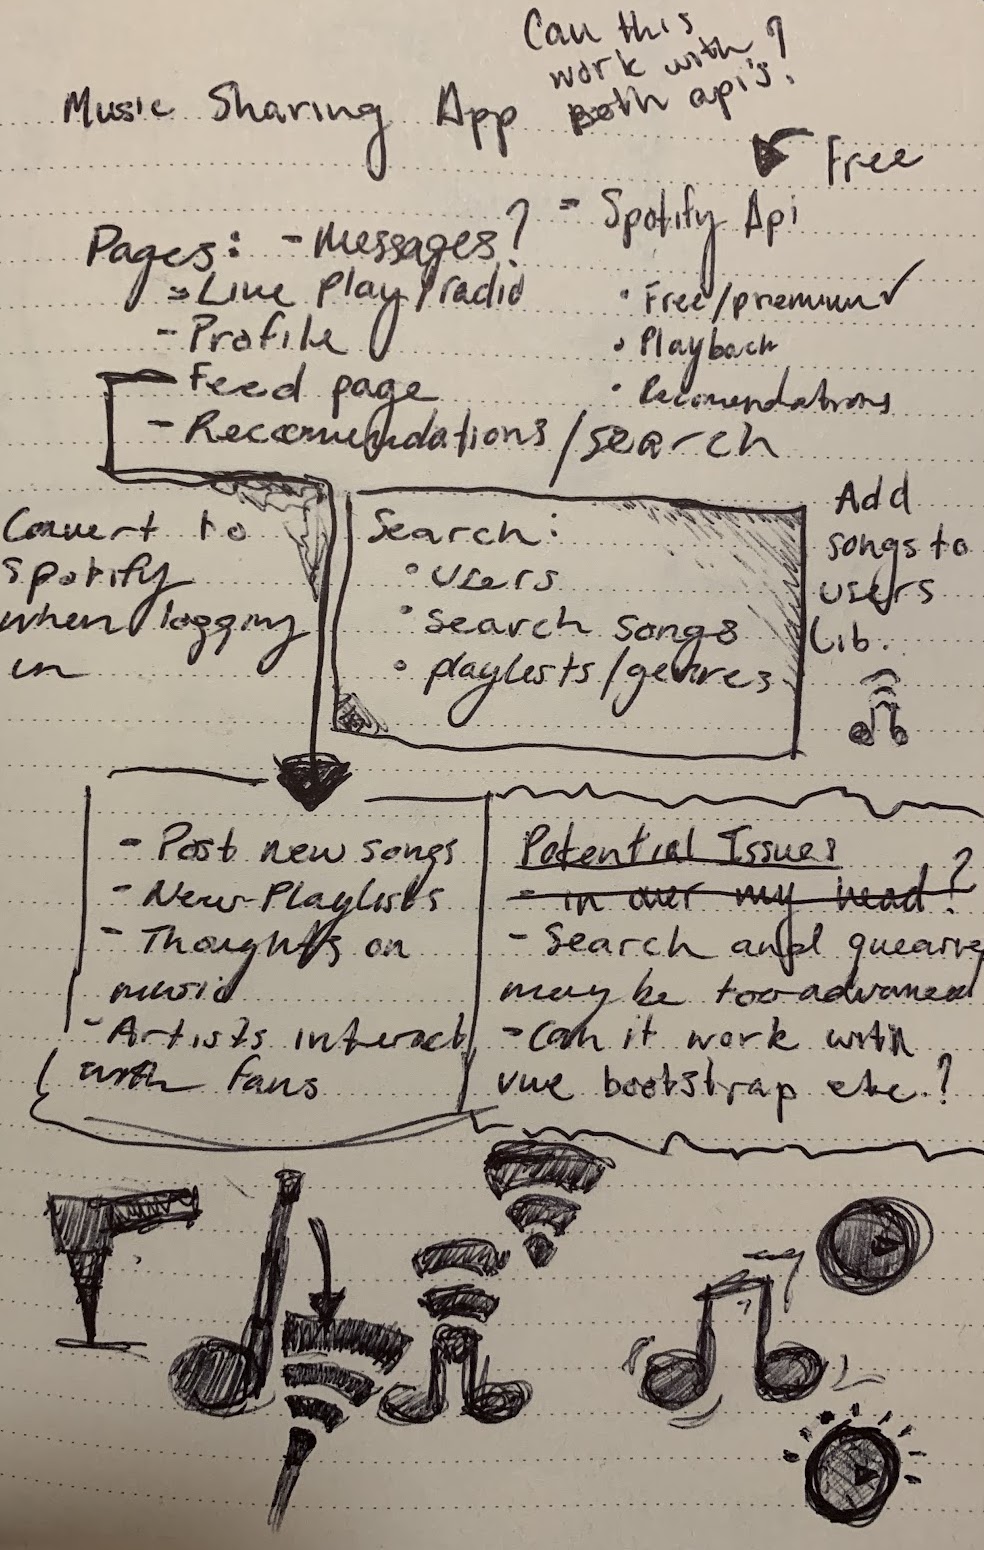 Can this
work with
Both api's?
Music Sharing App
Free
- Spotify Api
Pages: - Messages?
- Live Play/radio
• Free/premium ✓
- Profile
• Playback
- Feed page
• Recomendations
- Reccomendations/search
Convert to
spotify
when logging
in
Search:
• users
• Search songs
• playlists/genres
Add
songs to
users
Lib.
- Post new songs
- New Playlists
- Thoughts on
music
- Artists interact
with fans
Potential Issues
- in over my head?
- Search and
may be too advanced
- Can it work with
vue bootstrap etc.?